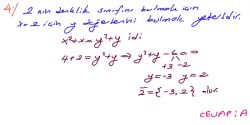 4) 2 nin denklik sınıfını bulmak için
x=2 için y değerlerini bulmak yeterlidir.
x²+x = y²+y idi
4+2 = y²+y ⇒ y²+y-6=0
+3 -2
y=-3 y=2
2̄ = {-3, 2} olur.
CEVAP: A